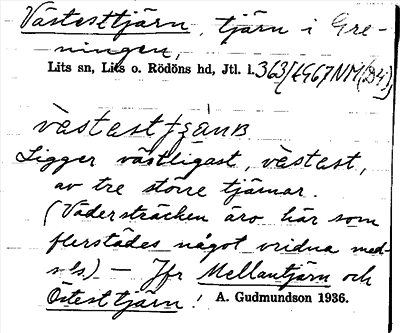 Västesttjärn, tjärn i Gre-
ningen,
Lits sn, Lits o. Rödöns hd, Jtl. l. 363/4967NM
Ligger västligast, västest,
av tre större tjärnar.
(Vädersträcken äro här som
flerstädes något vridna med-
sols) – Jfr Mellantjärn och
Östesttjärn! A. Gudmundson 1936.